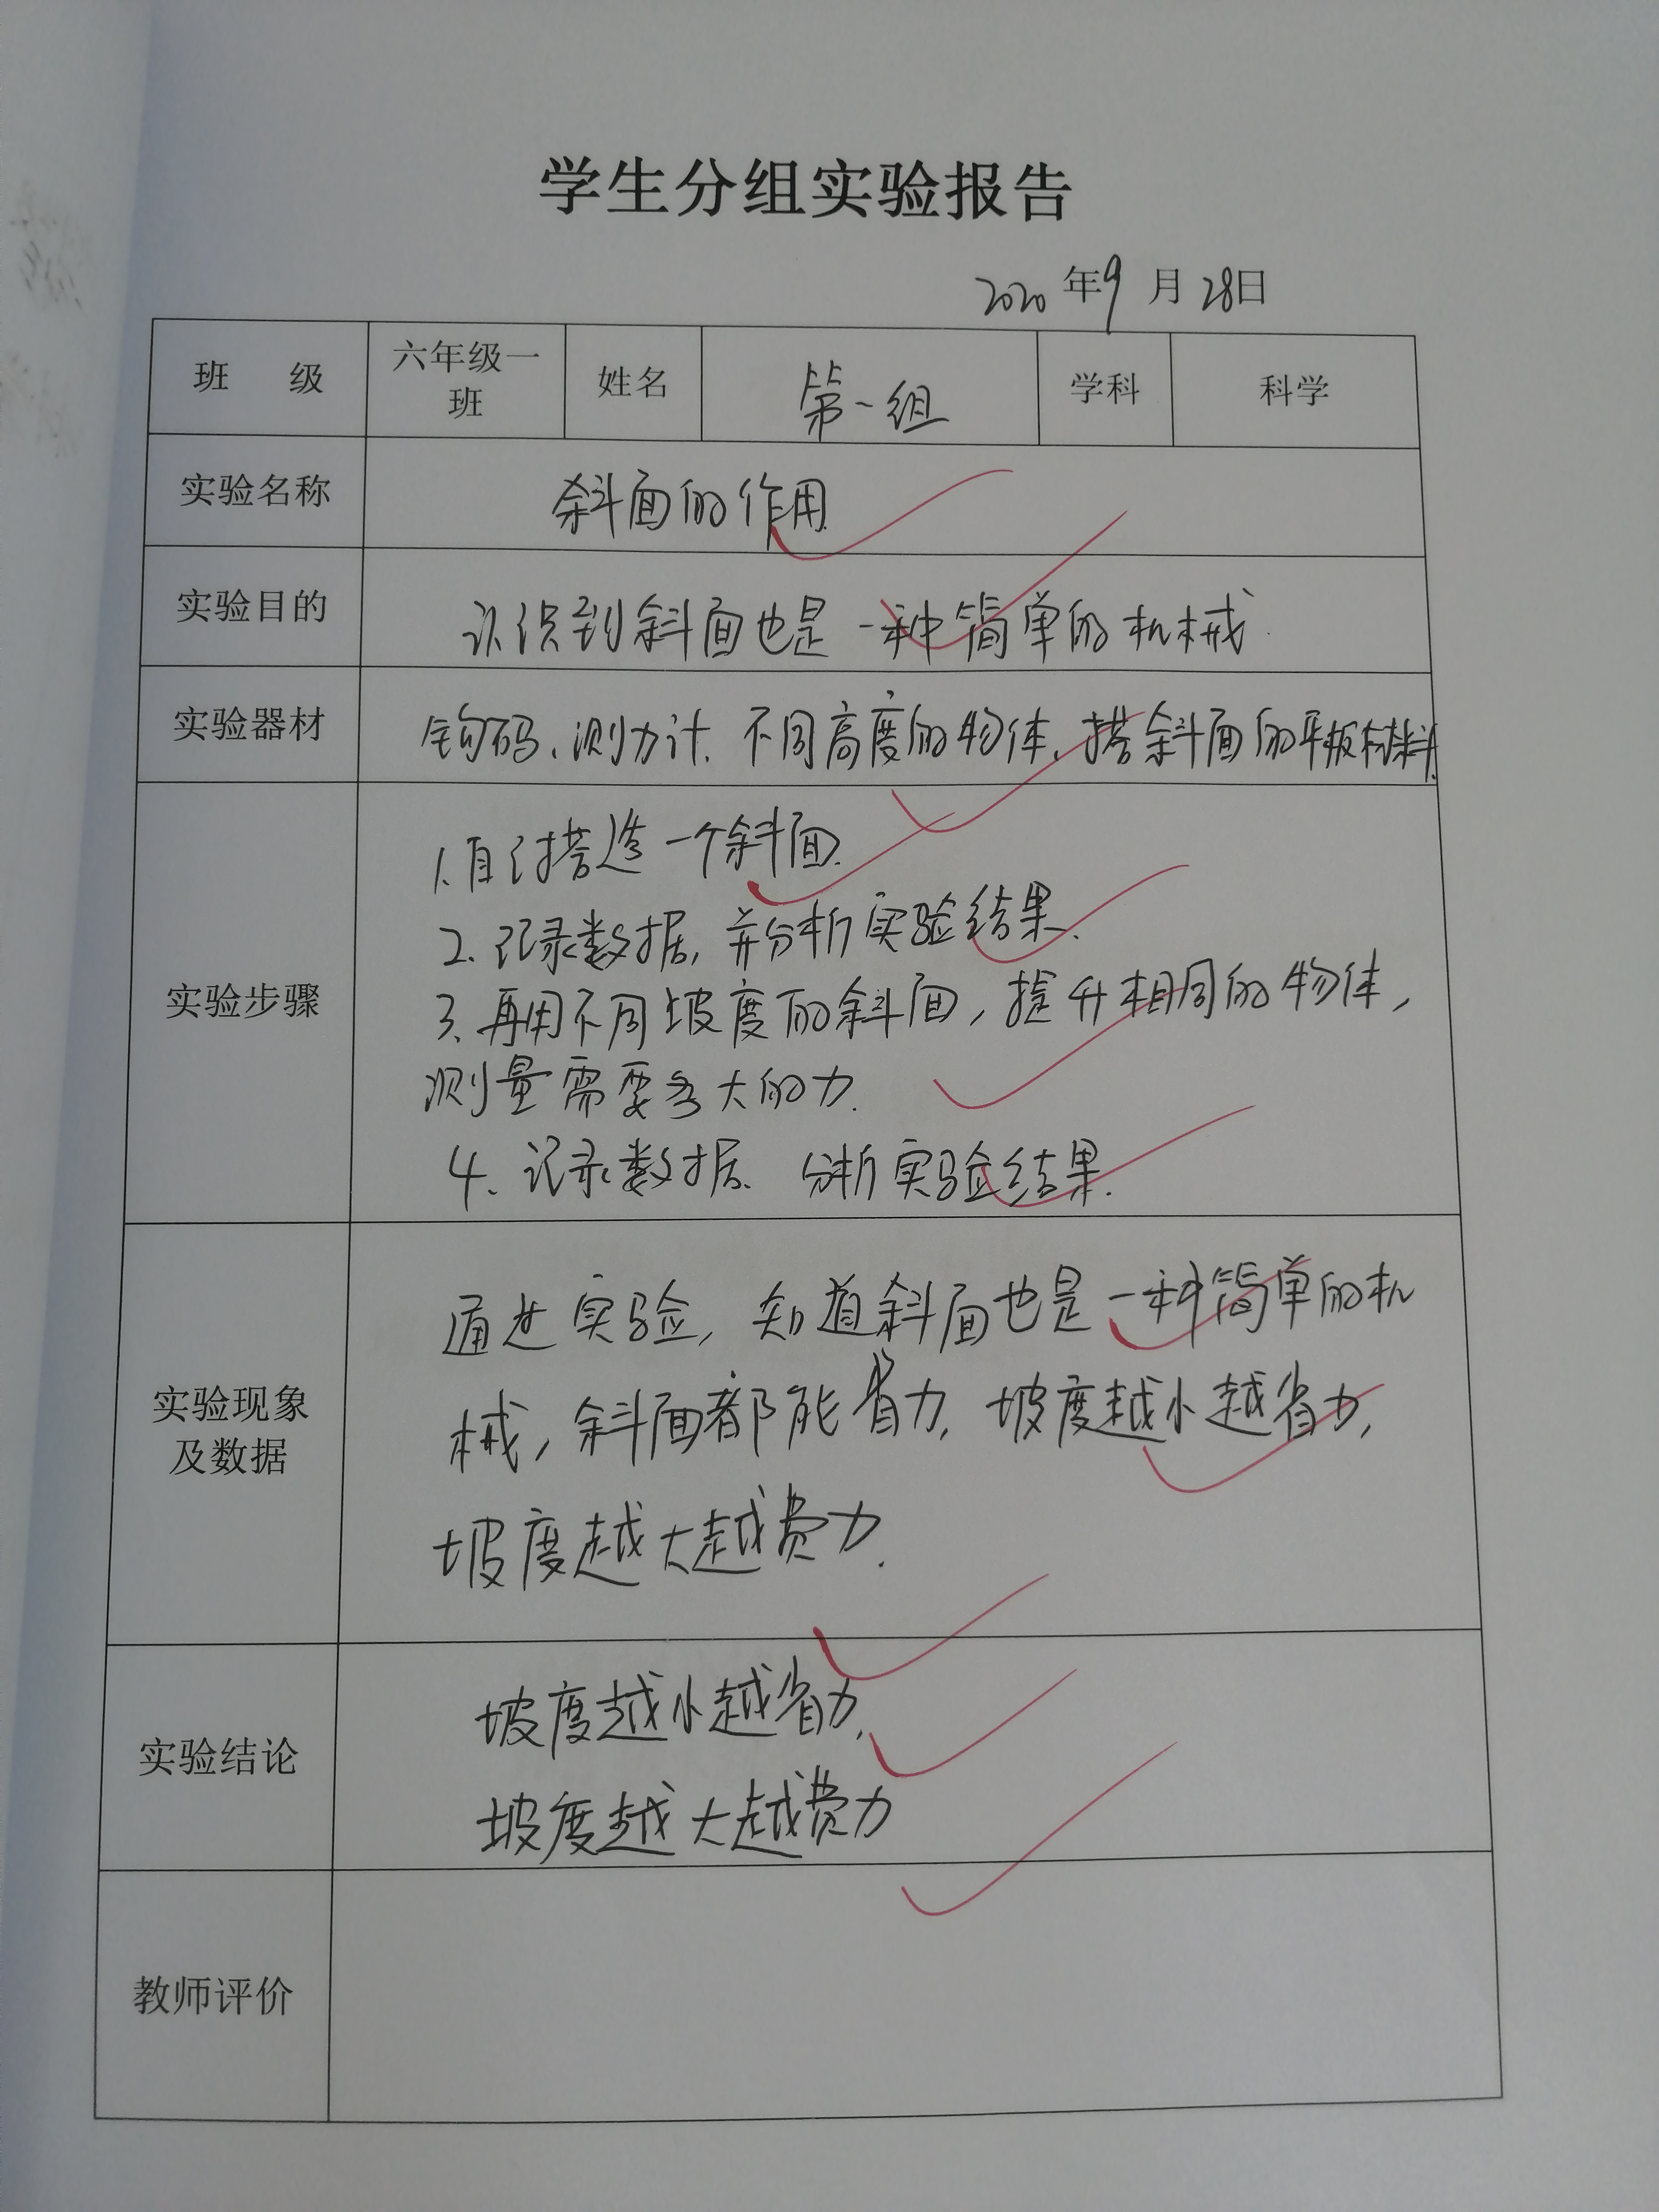 学生分组实验报告
2020年9月28日
班 级 六年级一班 姓名 第一组 学科 科学
实验名称 斜面的作用
实验目的 认识到斜面也是一种简单的机械.
实验器材 钩码、测力计、不同高度的物体、搭斜面的平板材料.
实验步骤
1.自己搭造一个斜面.
2.记录数据,并分析实验结果.
3.再用不同坡度的斜面,提升相同的物体,
测量需要多大的力.
4.记录数据、分析实验结果.
实验现象
及数据
通过实验,知道斜面也是一种简单的机
械,斜面都能省力,坡度越小越省力,
坡度越大越费力.
实验结论
坡度越小越省力,
坡度越大越费力
教师评价